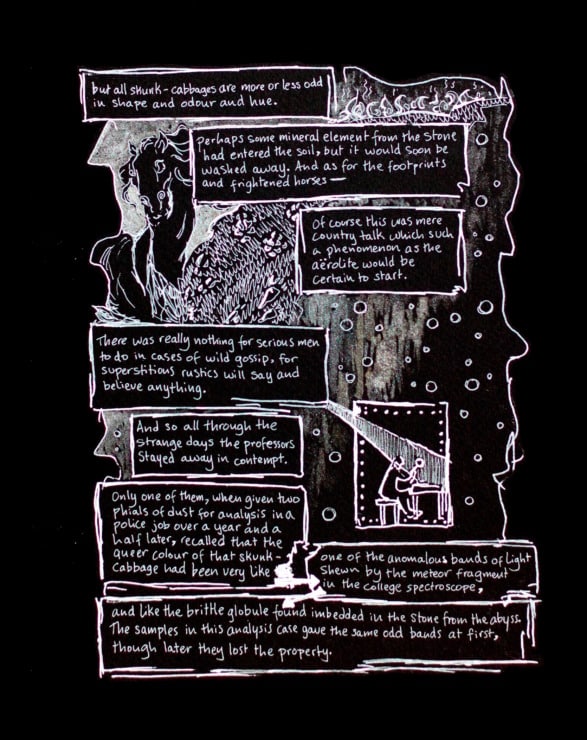 but all skunk-cabbages are more or less odd
in shape and odour and hue.
perhaps some mineral element from the stone
had entered the soil, but it would soon be
washed away. And as for the footprints
and frightened horses—
Of course this was mere
country talk which such
a phenomenon as the
aërolite would be
certain to start.
There was really nothing for serious men
to do in cases of wild gossip, for
superstitious rustics will say and
believe anything.
And so all through the
strange days the professors
stayed away in contempt.
Only one of them, when given two
phials of dust for analysis in a
police job over a year and a
half later, recalled that the
queer colour of that skunk-
cabbage had been very like
one of the anomalous bands of light
shewn by the meteor fragment
in the college spectroscope,
and like the brittle globule found imbedded in the stone from the abyss.
The samples in this analysis case gave the same odd bands at first,
though later they lost the property.